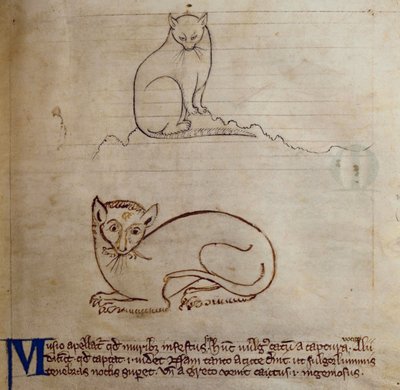 Musio apellat qd muribz infestus sit hunc uulg catū a captura uocant Alii
dicūt qd captat .i. uidet. Nam tanto acute cernit ut fulgore luminis
tenebras noctis superet. Vn a greco uenit catus .i. ingeniosus.